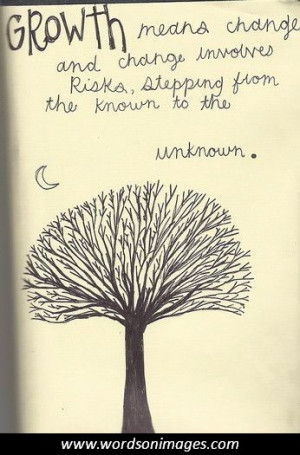 GROWTH means change
and change involves
Risks, stepping from
the known to the
unknown.
www.wordsonimages.com